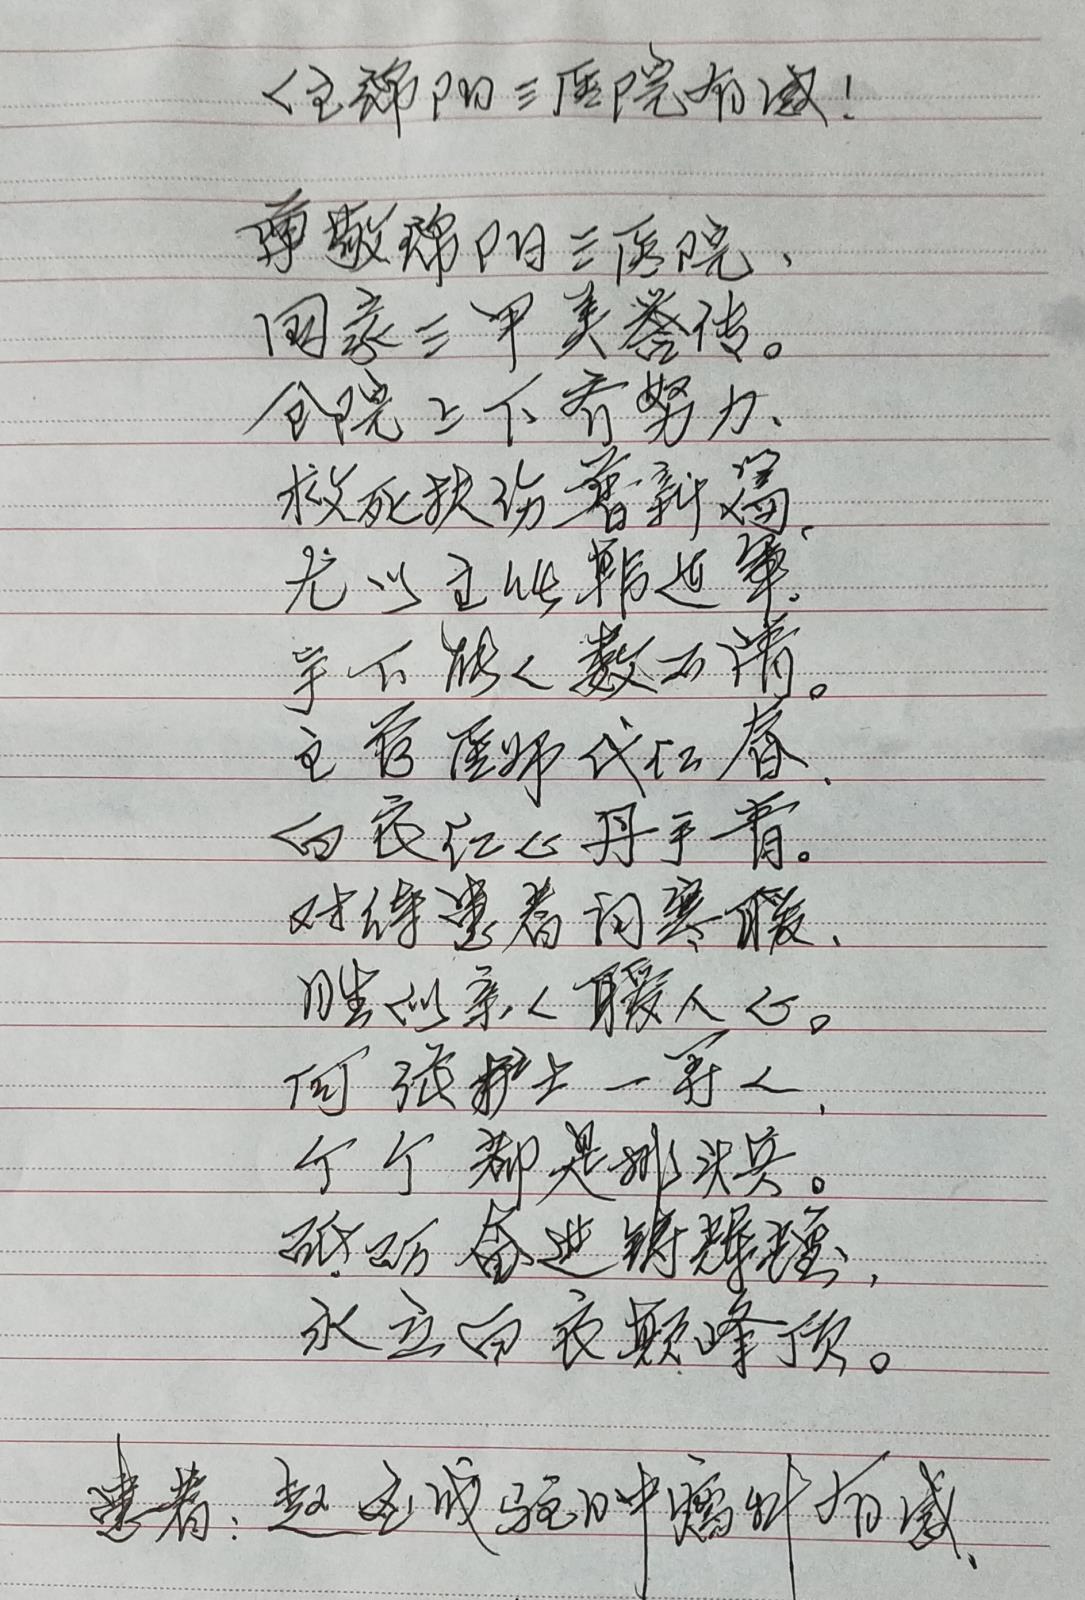 住绵阳三医院有感！
尊敬绵阳三医院、
国家三甲美誉传。
全院上下齐努力、
救死扶伤普新篇、
尤以主任韩进军、
手下能人数不清。
主管医师代红春、
白衣红心丹手青。
对待患者问寒暖、
胜似亲人暖人心。
何张护士一行人、
个个都是排头兵。
砥砺奋进铸辉煌、
永立白衣巅峰顶。
患者：赵玉成驻肿瘤科有感、